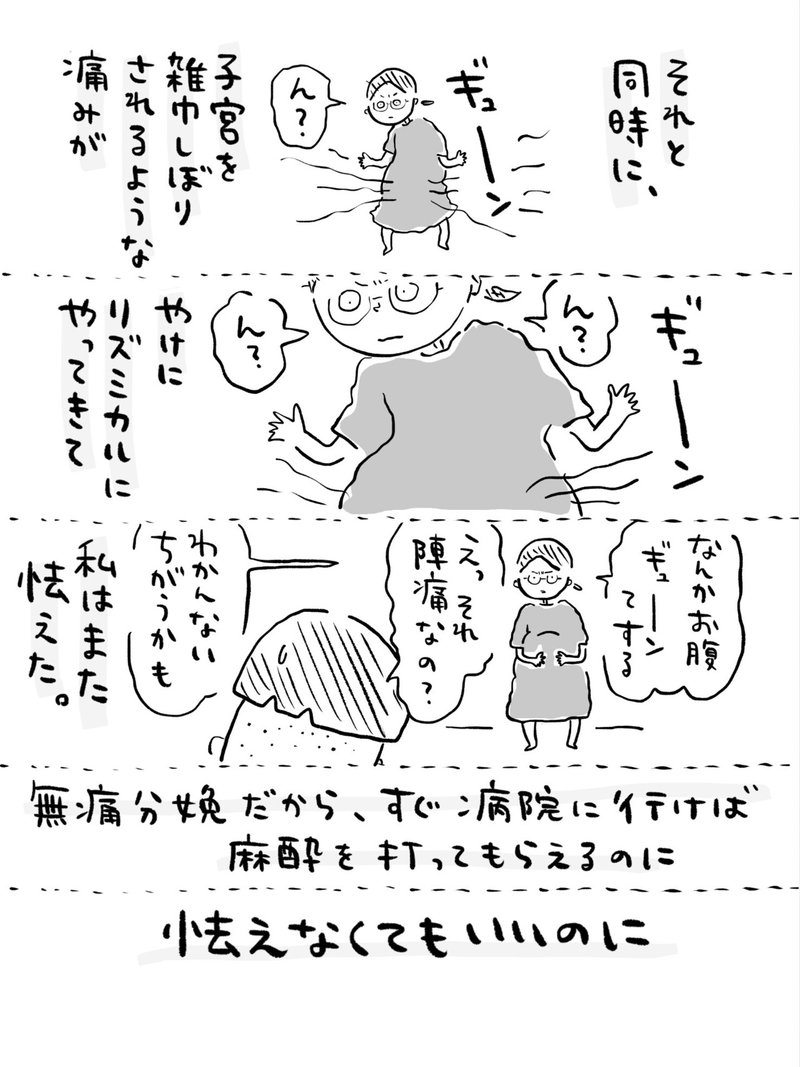 それと
同時に、
ギューーン
ん?
子宮を
雑巾しぼり
されるような
痛みが
ギューーン
ん?
ん?
やけに
リズミカルに
やってきて
なんかお腹
ギューーン
てする
えっそれ
陣痛なの?
わかんない
ちがうかも
私はまた
怯えた。
無痛分娩だから、すぐ病院に行けば
麻酔を打ってもらえるのに
怯えなくてもいいのに